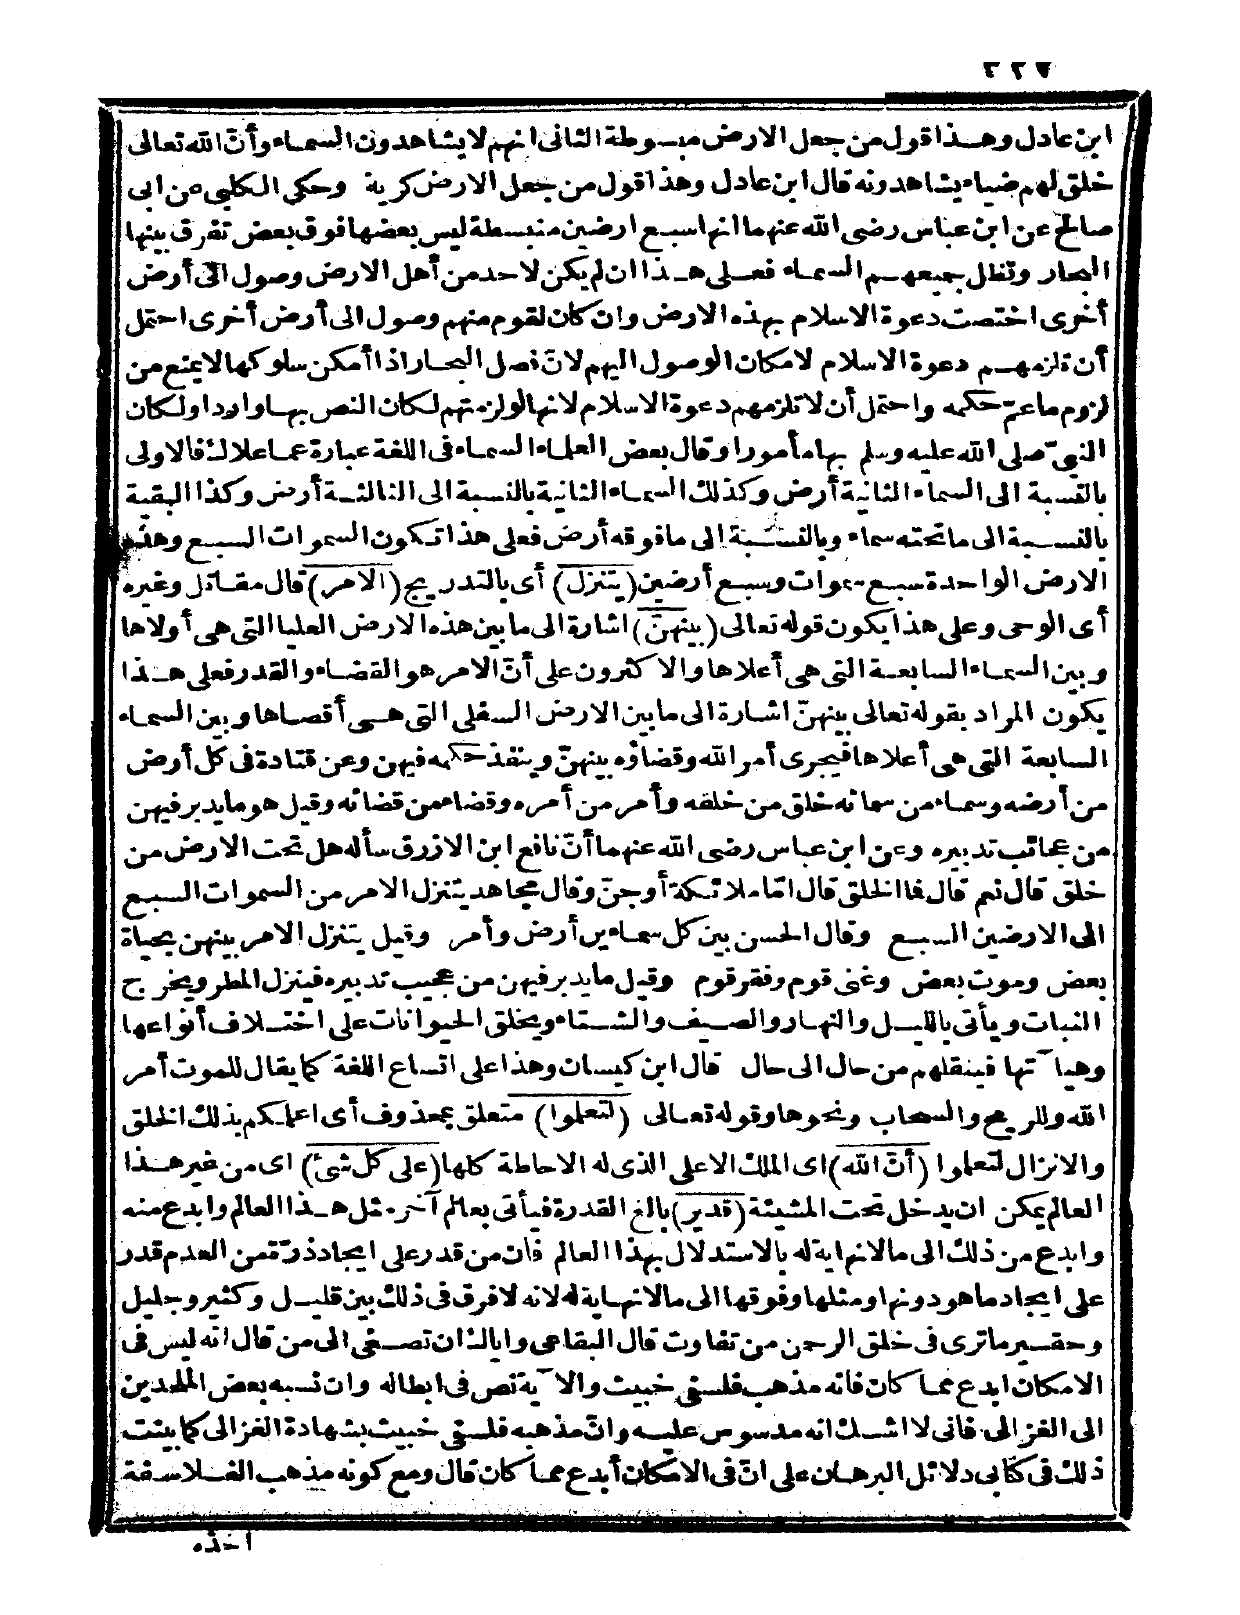 ٣٢٧
ابن عادل وهذا قول من جعل الارض مبسوطة الثانى انهم لا يشاهدون السماء وأنّ الله تعالى
خلق لهم ضياء يشاهدونه قال ابن عادل وهذا قول من جعل الارض كرية وحكى الكلبى عن ابى
صالح عن ابن عباس رضى الله عنهما انها سبع ارضين منبسطة ليس بعضها فوق بعض تفرق بينها
البحار وتظل جميعهم السماء فعلى هذا ان لم يكن لاحد من أهل الارض وصول الى أرض
أخرى اختصت دعوة الاسلام بهذه الارض وان كان لقوم منهم وصول الى أرض أخرى احتمل
أن تلزمهم دعوة الاسلام لامكان الوصول اليهم لانّ فصل البحار اذا أمكن سلوكها لا يمنع من
لزوم ما عمّ حكمه واحتمل أن لا تلزمهم دعوة الاسلام لانها لو لزمتهم لكان النص بها واردا ولكان
النبىّ صلى الله عليه وسلم بها مأمورا وقال بعض العلماء السماء فى اللغة عبارة عما علاك فالاولى
بالنسبة الى السماء الثانية أرض وكذلك السماء الثانية بالنسبة الى الثالثة أرض وكذا البقية
بالنسبة الى ما تحته سماء وبالنسبة الى ما فوقه أرض فعلى هذا تكون السموات السبع وهذه
الارض الواحدة سبع سموات وسبع أرضين (يتنزل) أى بالتدريج (الامر) قال مقاتل وغيره
أى الوحى وعلى هذا يكون قوله تعالى (بينهنّ) اشارة الى ما بين هذه الارض العليا التى هى أولاها
وبين السماء السابعة التى هى أعلاها والاكثرون على أنّ الامر هو القضاء والقدر فعلى هذا
يكون المراد بقوله تعالى بينهنّ اشارة الى ما بين الارض السفلى التى هى أقصاها وبين السماء
السابعة التى هى أعلاها فيجرى أمر الله وقضاؤه بينهنّ وينفذ حكمه فيهن وعن قتادة فى كل أرض
من أرضه وسماء من سمائه خلق من خلقه وأمر من أمره وقضاء من قضائه وقيل هو ما يدبر فيهن
من عجائب تدبيره وعن ابن عباس رضى الله عنهما أنّ نافع ابن الازرق سأله هل تحت الارض من
خلق قال نعم قال فما الخلق قال امّا ملائكة أو جنّ وقال مجاهد يتنزل الامر من السموات السبع
الى الارضين السبع وقال الحسن بين كل سماءين أرض وأمر وقيل يتنزل الامر بينهن بحياة
بعض وموت بعض وغنى قوم وفقر قوم وقيل ما يدبر فيهن من عجيب تدبيره فينزل المطر ويخرج
النبات ويأتى بالليل والنهار والصيف والشتاء ويخلق الحيوانات على اختلاف أنواعها
وهيآتها فينقلهم من حال الى حال قال ابن كيسان وهذا على اتساع اللغة كما يقال للموت أمر
الله وللريح والسحاب ونحوها وقوله تعالى (لتعلموا) متعلق بمحذوف أى اعلمكم بذلك الخلق
والانزال لتعلموا (أنّ الله) اى الملك الاعلى الذى له الاحاطة كلها (على كل شئ) اى من غير هذا
العالم يمكن ان يدخل تحت المشيئة (قدير) بالغ القدرة فيأتى بعالم آخر مثل هذا العالم وابدع منه
وابدع من ذلك الى ما لا نهاية له بالاستدلال بهذا العالم فانّ من قدر على ايجاد ذرّة من العدم قدر
على ايجاد ما هو دونها ومثلها وفوقها الى ما لا نهاية له لانه لا فرق فى ذلك بين قليل وكثير وجليل
وحقير ما ترى فى خلق الرحمن من تفاوت قال البقاعى واياك ان تصغى الى من قال انه ليس فى
الامكان ابدع مما كان فانه مذهب فلسفى خبيث والآية نص فى ابطاله وان نسبه بعض الملحدين
الى الغزالى فانى لا اشك انه مدسوس عليه وانّ مذهبه فلسفى خبيث بشهادة الغزالى كما بينت
ذلك فى كتابى دلائل البرهان على انّ فى الامكان أبدع مما كان قال ومع كونه مذهب الفلاسفة
اخذه